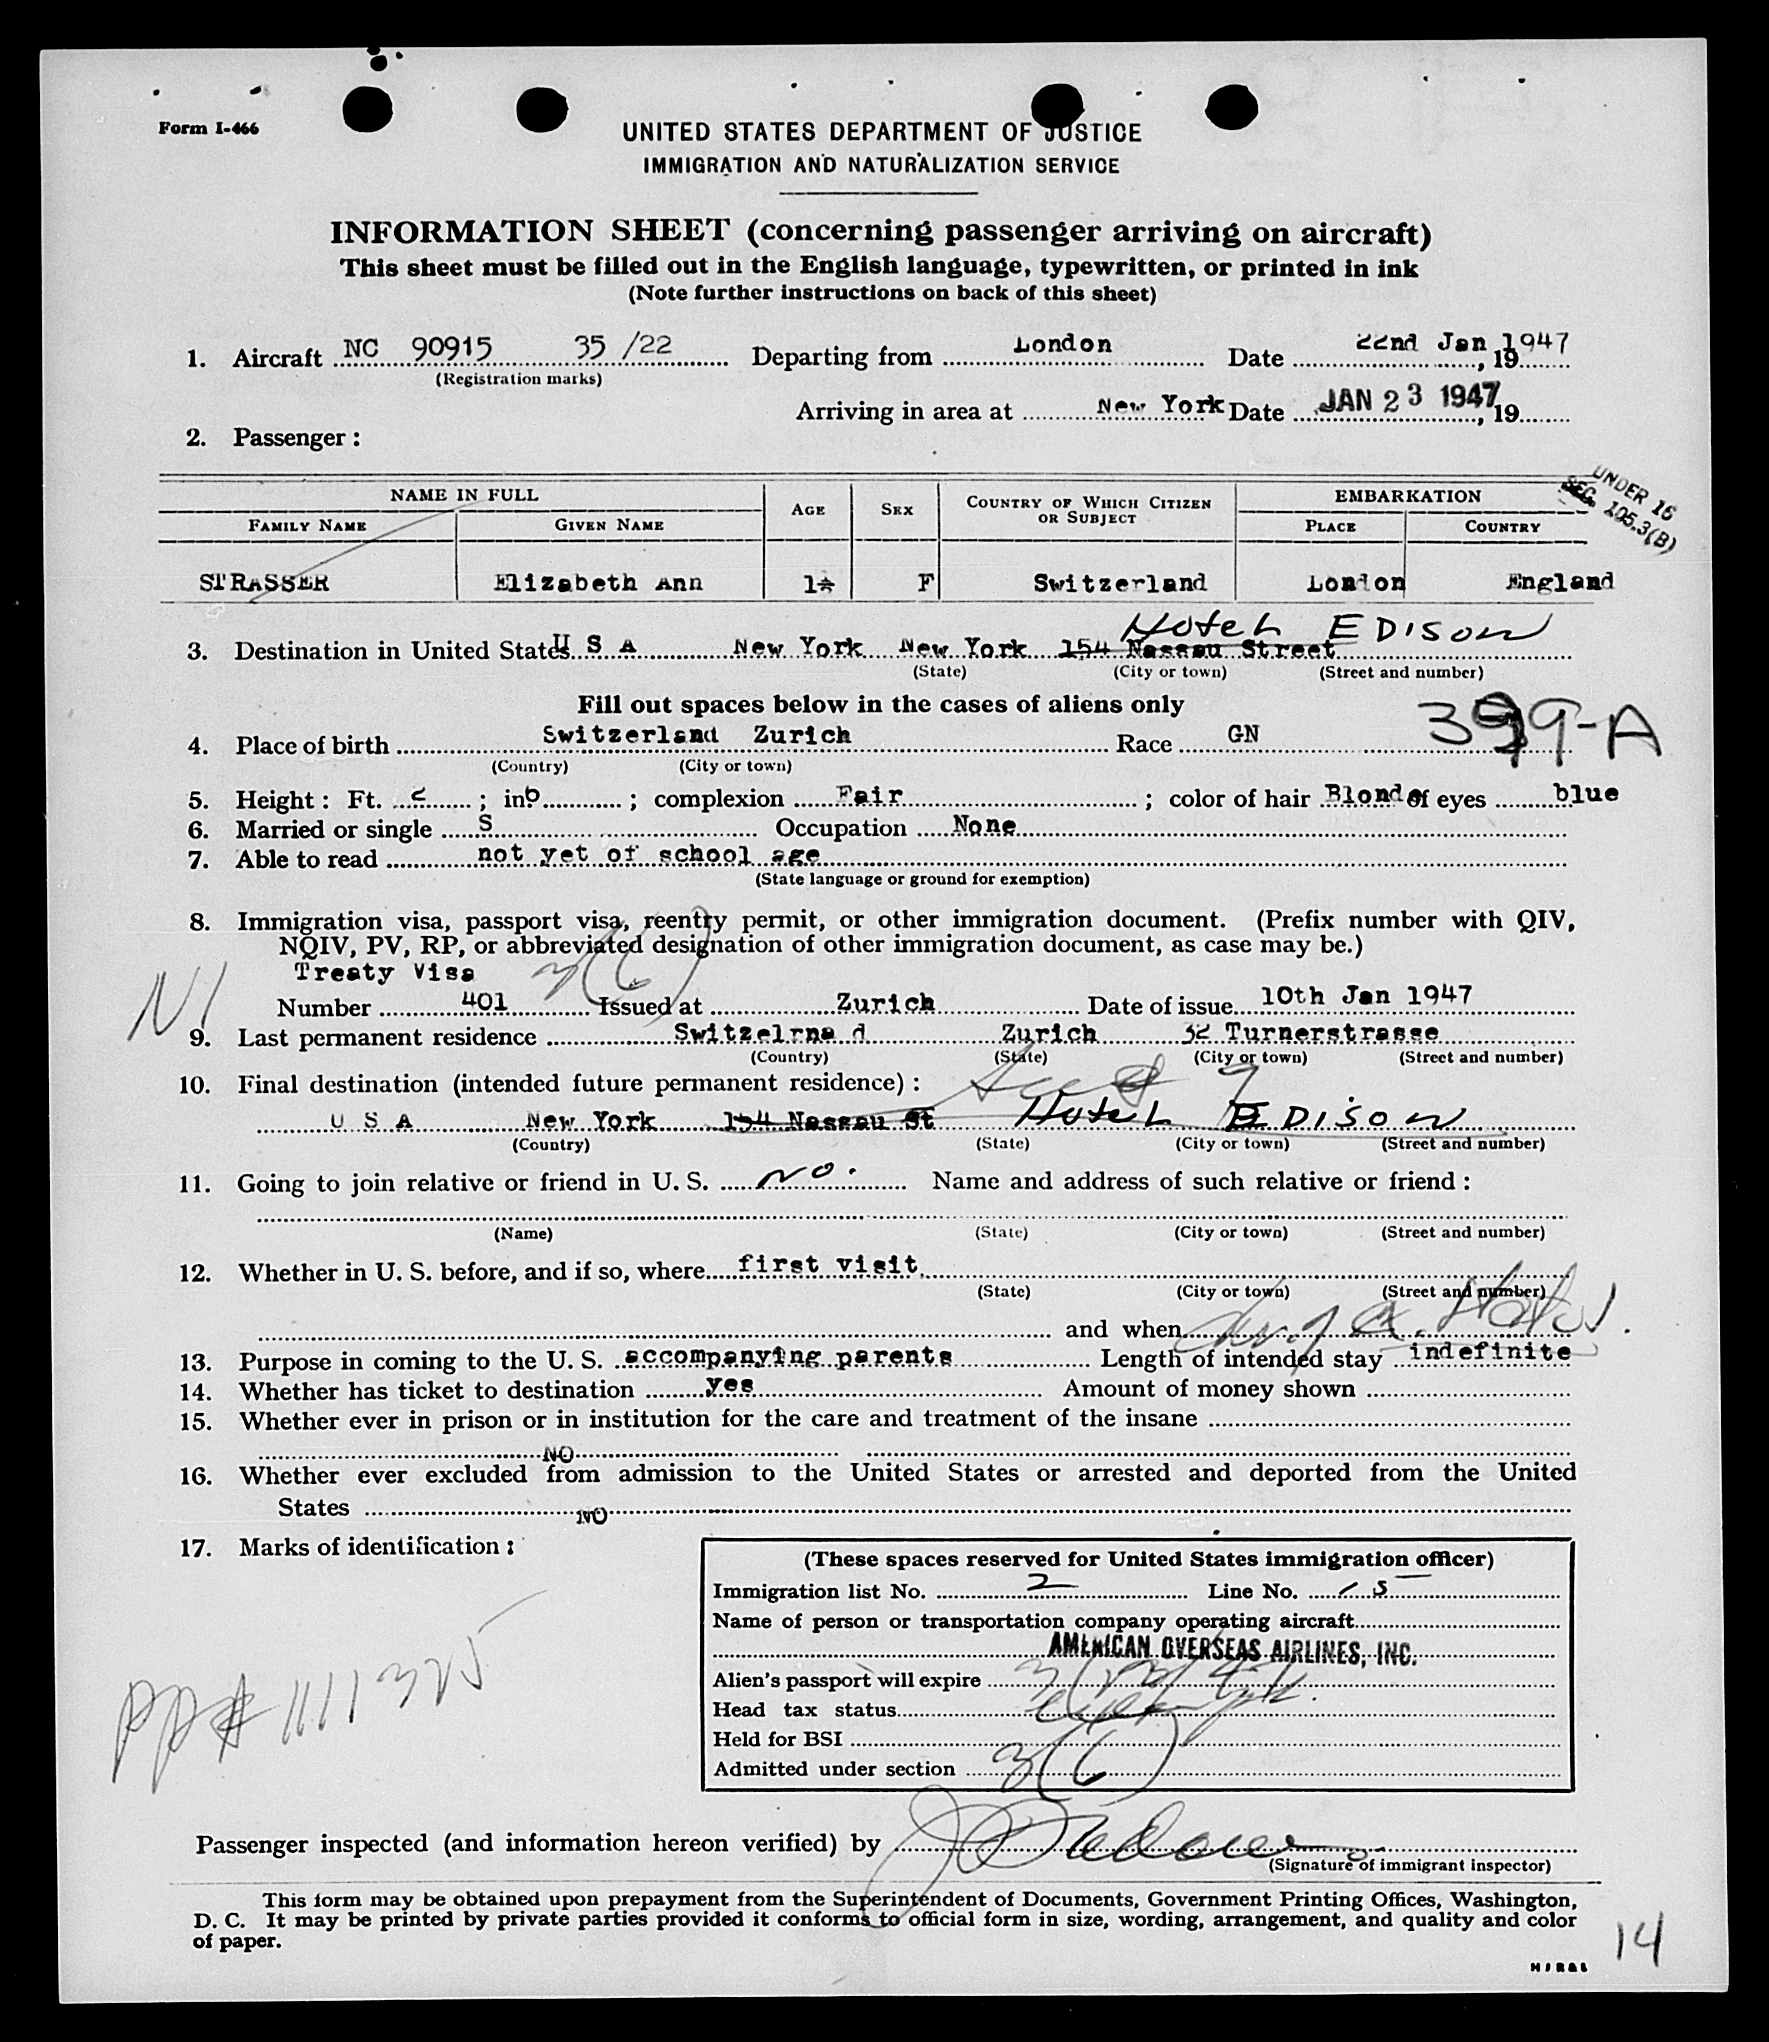 Form I-466
UNITED STATES DEPARTMENT OF JUSTICE
IMMIGRATION AND NATURALIZATION SERVICE
INFORMATION SHEET (concerning passenger arriving on aircraft)
This sheet must be filled out in the English language, typewritten, or printed in ink
(Note further instructions on back of this sheet)
1. Aircraft NC 90915 35 /22 Departing from London Date 22nd Jan 1947, 19
(Registration marks)
Arriving in area at New York Date JAN 23 1947, 19
2. Passenger:
UNDER 16
SEC. 105.3(B)
NAME IN FULL AGE SEX COUNTRY OF WHICH CITIZEN OR SUBJECT EMBARKATION
FAMILY NAME GIVEN NAME PLACE COUNTRY
STRASSER Elizabeth Ann F Switzerland London England
Hotel EDISON
3. Destination in United States U S A New York New York 154 Nassau Street
(State) (City or town) (Street and number)
Fill out spaces below in the cases of aliens only
399-A
4. Place of birth Switzerland Zurich Race GN
(Country) (City or town)
5. Height: Ft. 2; in 6; complexion Fair; color of hair Blonde of eyes blue
6. Married or single S Occupation None
7. Able to read not yet of school age
(State language or ground for exemption)
8. Immigration visa, passport visa, reentry permit, or other immigration document. (Prefix number with QIV,
NQIV, PV, RP, or abbreviated designation of other immigration document, as case may be.)
Treaty Visa 3(6)
NI
Number 401 Issued at Zurich Date of issue 10th Jan 1947
9. Last permanent residence Switzelrna d Zurich 32 Turnerstrasse
(Country) (State) (City or town) (Street and number)
10. Final destination (intended future permanent residence):
U S A New York 154 Nassau St Hotel EDISON
(Country) (State) (City or town) (Street and number)
11. Going to join relative or friend in U. S. NO. Name and address of such relative or friend:
(Name) (State) (City or town) (Street and number)
12. Whether in U. S. before, and if so, where first visit
(State) (City or town) (Street and number)
and when
13. Purpose in coming to the U. S. accompanying parents Length of intended stay indefinite
14. Whether has ticket to destination yes Amount of money shown
15. Whether ever in prison or in institution for the care and treatment of the insane
NO
16. Whether ever excluded from admission to the United States or arrested and deported from the United
States NO
17. Marks of identification:
PP# 111325
(These spaces reserved for United States immigration officer)
Immigration list No. 2 Line No. 15
Name of person or transportation company operating aircraft
AMERICAN OVERSEAS AIRLINES, INC.
Alien's passport will expire
Head tax status
Held for BSI
Admitted under section 3(6)
Passenger inspected (and information hereon verified) by
(Signature of immigrant inspector)
This form may be obtained upon prepayment from the Superintendent of Documents, Government Printing Offices, Washington,
D. C. It may be printed by private parties provided it conforms to official form in size, wording, arrangement, and quality and color
of paper.
14